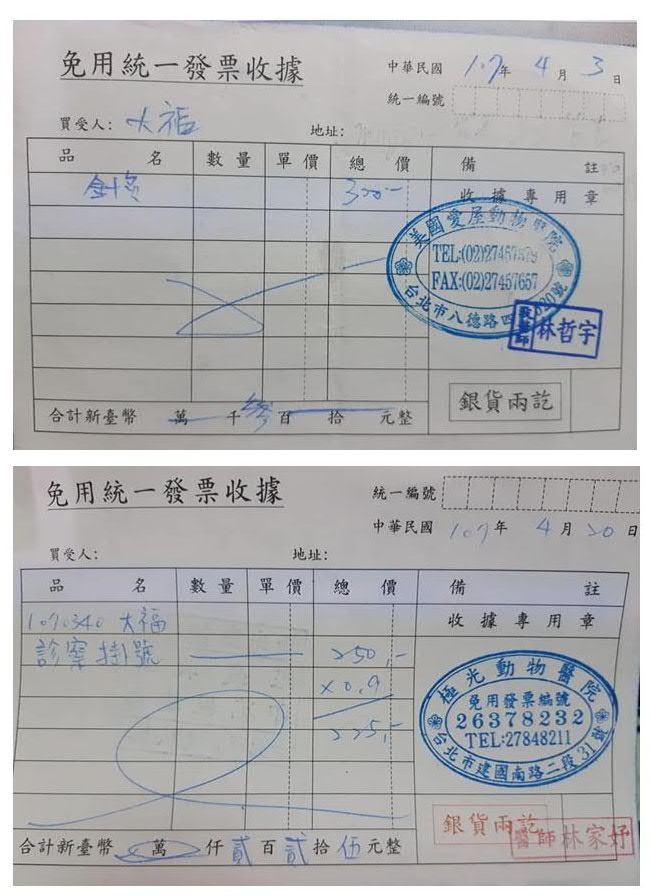 免用統一發票收據
中華民國 107年 4月 3日
統一編號
買受人：大福 地址：
品名 數量 單價 總價 備註
300- 收據專用章
美國愛屋動物醫院
TEL:(02)2745
FAX:(02)27457657
台北市八德路四 號
獸醫師 林哲宇
銀貨兩訖
合計新臺幣 萬 千 參 百 拾 元整
免用統一發票收據
統一編號
中華民國 107年 4月 20日
買受人： 地址：
品名 數量 單價 總價 備註
1070340 大福 收據專用章
診察掛號 250,-
x0.9
225,-
極光動物醫院
免用發票編號
26378232
TEL:27848211
台北市建國南路二段31號
銀貨兩訖
醫師 林家妤
合計新臺幣 萬 仟 貳 百 貳 拾 伍 元整